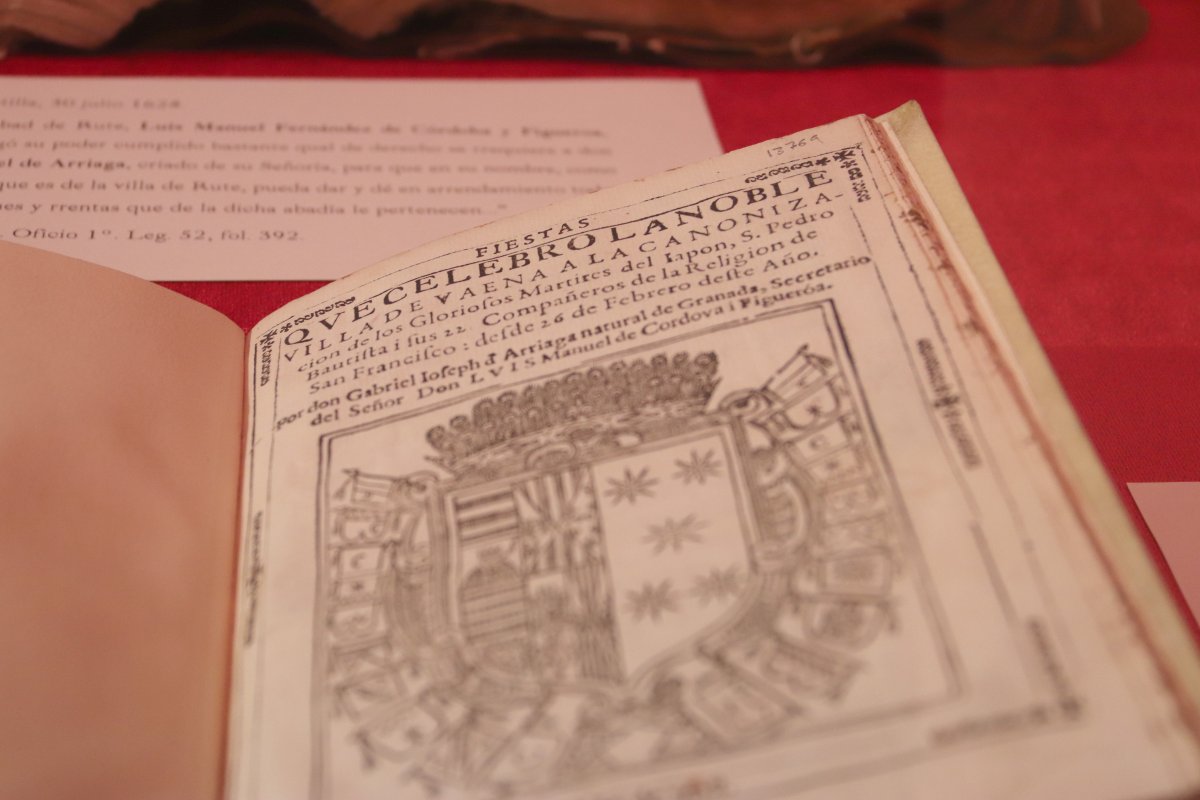 tilla, 30 julio 1628.
bad de Rute, Luis Manuel Fernández de Córdoba y Figueroa,
gó su poder cumplido bastante qual de derecho se rrequiera a don
el de Arriaga, criado de su Señoría, para que en su nombre, como
que es de la villa de Rute, pueda dar y dé en arrendamiento
es y rrentas que de la dicha abadía le pertenecen..."
Oficio 1º. Leg. 52, fol. 392.
13769
FIESTAS
QVE CELEBRO LA NOBLE
VILLA DE VAENA A LA CANONIZA-
cion de los Gloriosos Martires del Iapon, S. Pedro
Bautista i sus 22 Compañeros de la Religion de
San Francisco: desde 26 de Febrero deste Año.
por don Gabriel Ioseph đ Arriaga natural de Granada, Secretario
del Señor Don LVIS Manuel de Cordova i Figueróa.